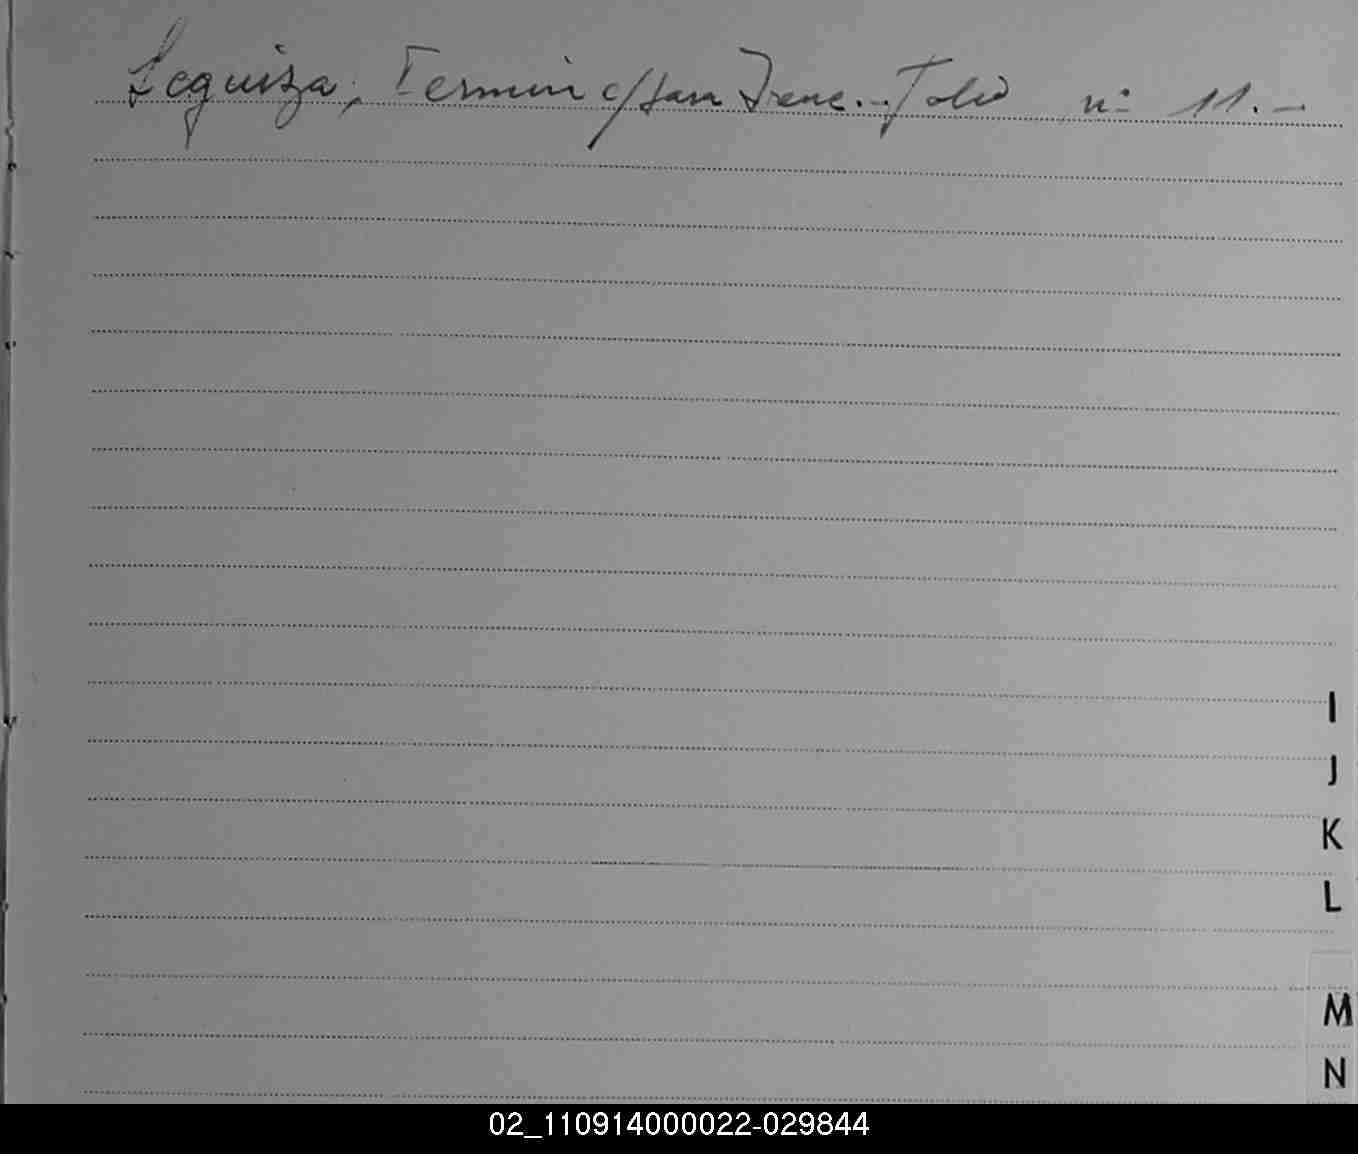 Leguiza, Fermin c/Sara Irene.- Folio nº 11.-
I
J
K
L
M
N
02_110914000022-029844